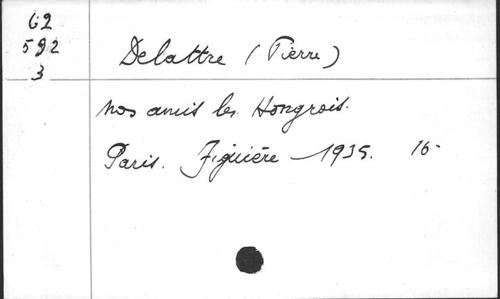 62
592
3
Delattre (Pierre)
nos amis les Hongrois.
Paris. Figuière — 1935. 16-